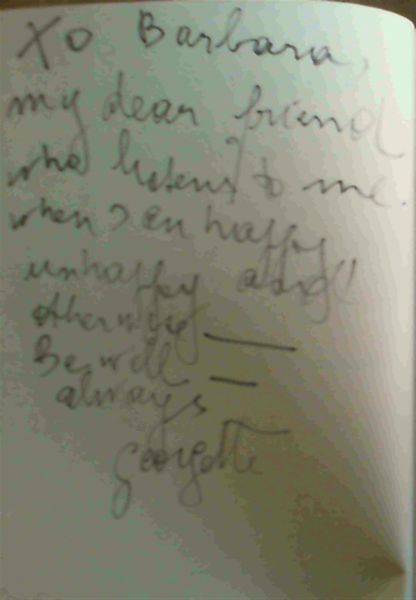 To Barbara,
my dear friend
who listens to me
when I am happy
unhappy
otherwise —
Be well —
always
Georgette